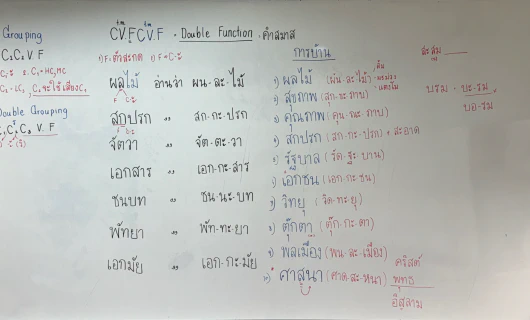 Grouping
C₁C₂ V. F
Double Grouping
C₁C₂C₃ V. F
CV.FCV.F · Double Function · คำสมาส
1) F=ตัวสะกด 2) F=C-ะ
ผลไม้ อ่านว่า ผน·ละ·ไม้
สกปรก " สก·กะ·ปรก
จัตวา " จัต·ตะ·วา
เอกสาร " เอก·กะ·สาร
ชนบท " ชน·นะ·บท
พัทยา " พัท·ทะ·ยา
เอกมัย " เอก·กะ·มัย
การบ้าน
1) ผลไม้ (ผน·ละ·ไม้)
2) สุขภาพ (สุก·ขะ·ภาพ)
3) คุณภาพ (คุน·นะ·ภาพ)
4) สกปรก (สก·กะ·ปรก) ≠ สะอาด
5) รัฐบาล (รัด·ฐะ·บาน)
6) เอกชน (เอก·กะ·ชน)
7) วิทยุ (วิด·ทะ·ยุ)
8) ตุ๊กตา (ตุ๊ก·กะ·ตา)
9) พลเมือง (พน·ละ·เมือง)
10) ศาสนา (ศาด·สะ·หนา)
คริสต์
พุทธ
อิสลาม
สะสม
บรม - บะ·รม
บอ·รม